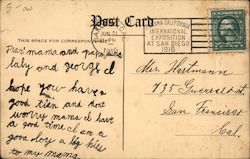 5-20
Post Card
JUN 21
1916
PANAMA CALIFORNIA
INTERNATIONAL
EXPOSITION
AT SAN DIEGO
1916
Dear mama and papa and
baby and george I
hope you have a
good time and dont
worry mama I have
a good time I am a
good boy a big kiss
to my mama
Mrs. Hartmann
735 Guerrero St
San Francisco
Cal.